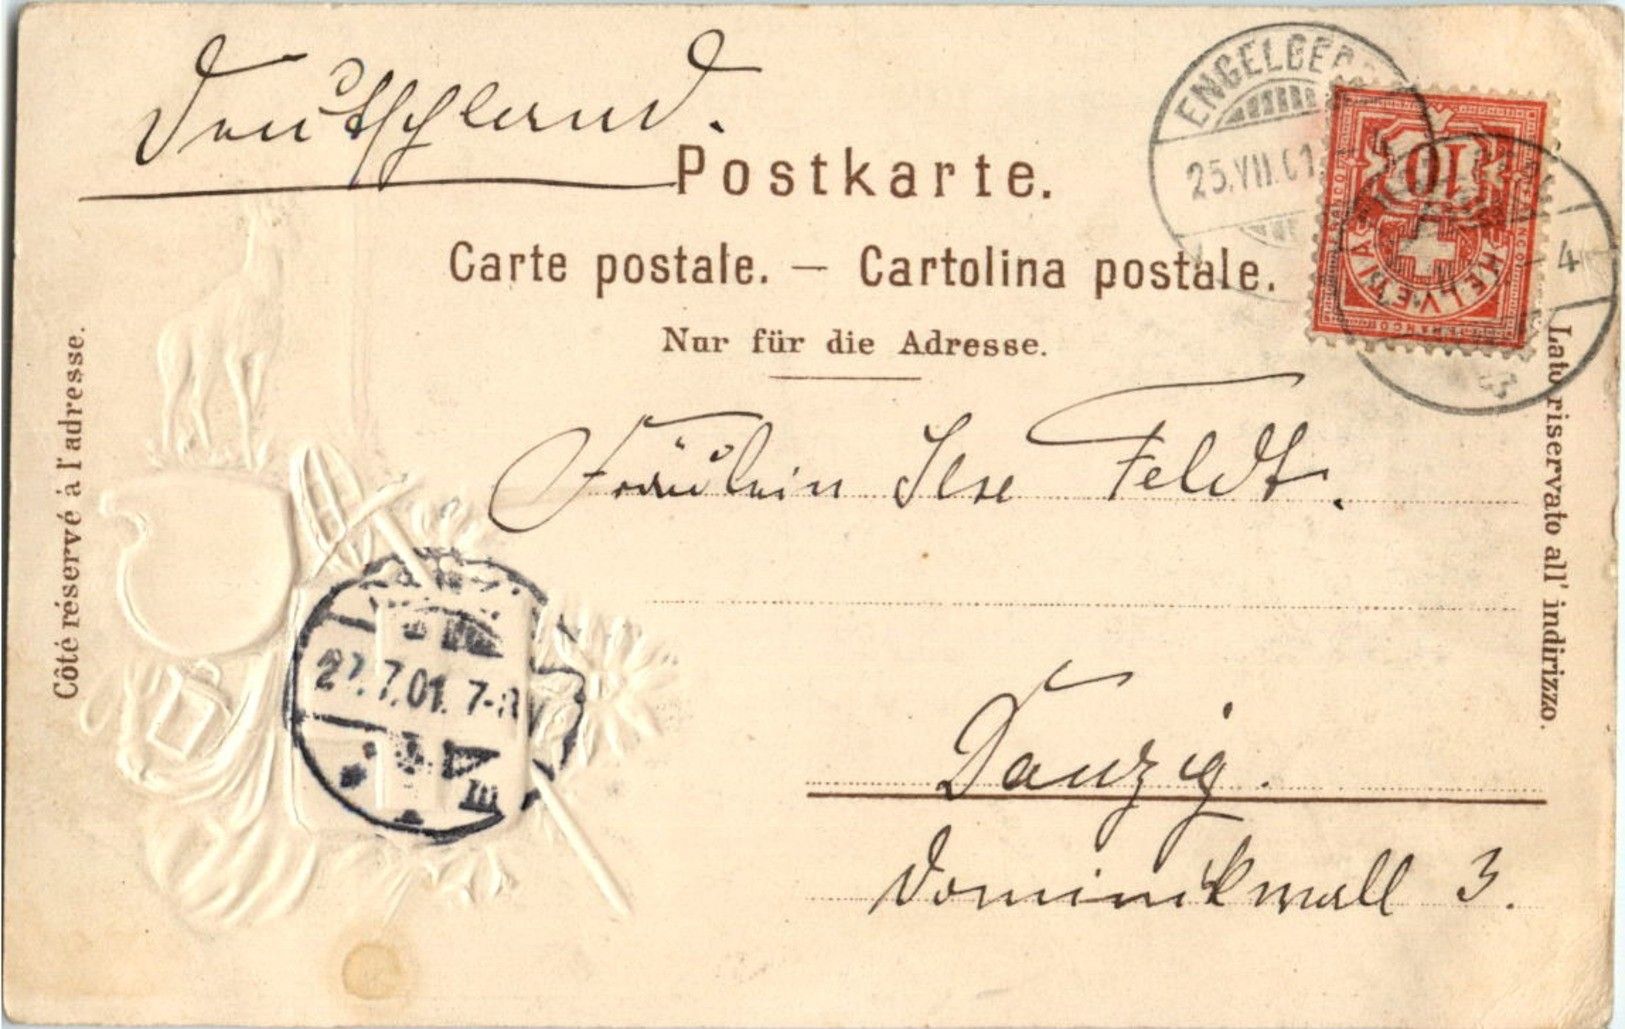 Deutschland.
Postkarte.
Carte postale. — Cartolina postale.
Nur für die Adresse.
Côté réservé à l'adresse.
Lato riservato all' indirizzo.
ENGELBERG
25.VII.01.
10
HELVETIA
FRANCO
4
Fräulein Ilse Feldt.
Danzig.
Dominikwall 3.
27.7.01. 7-8 V